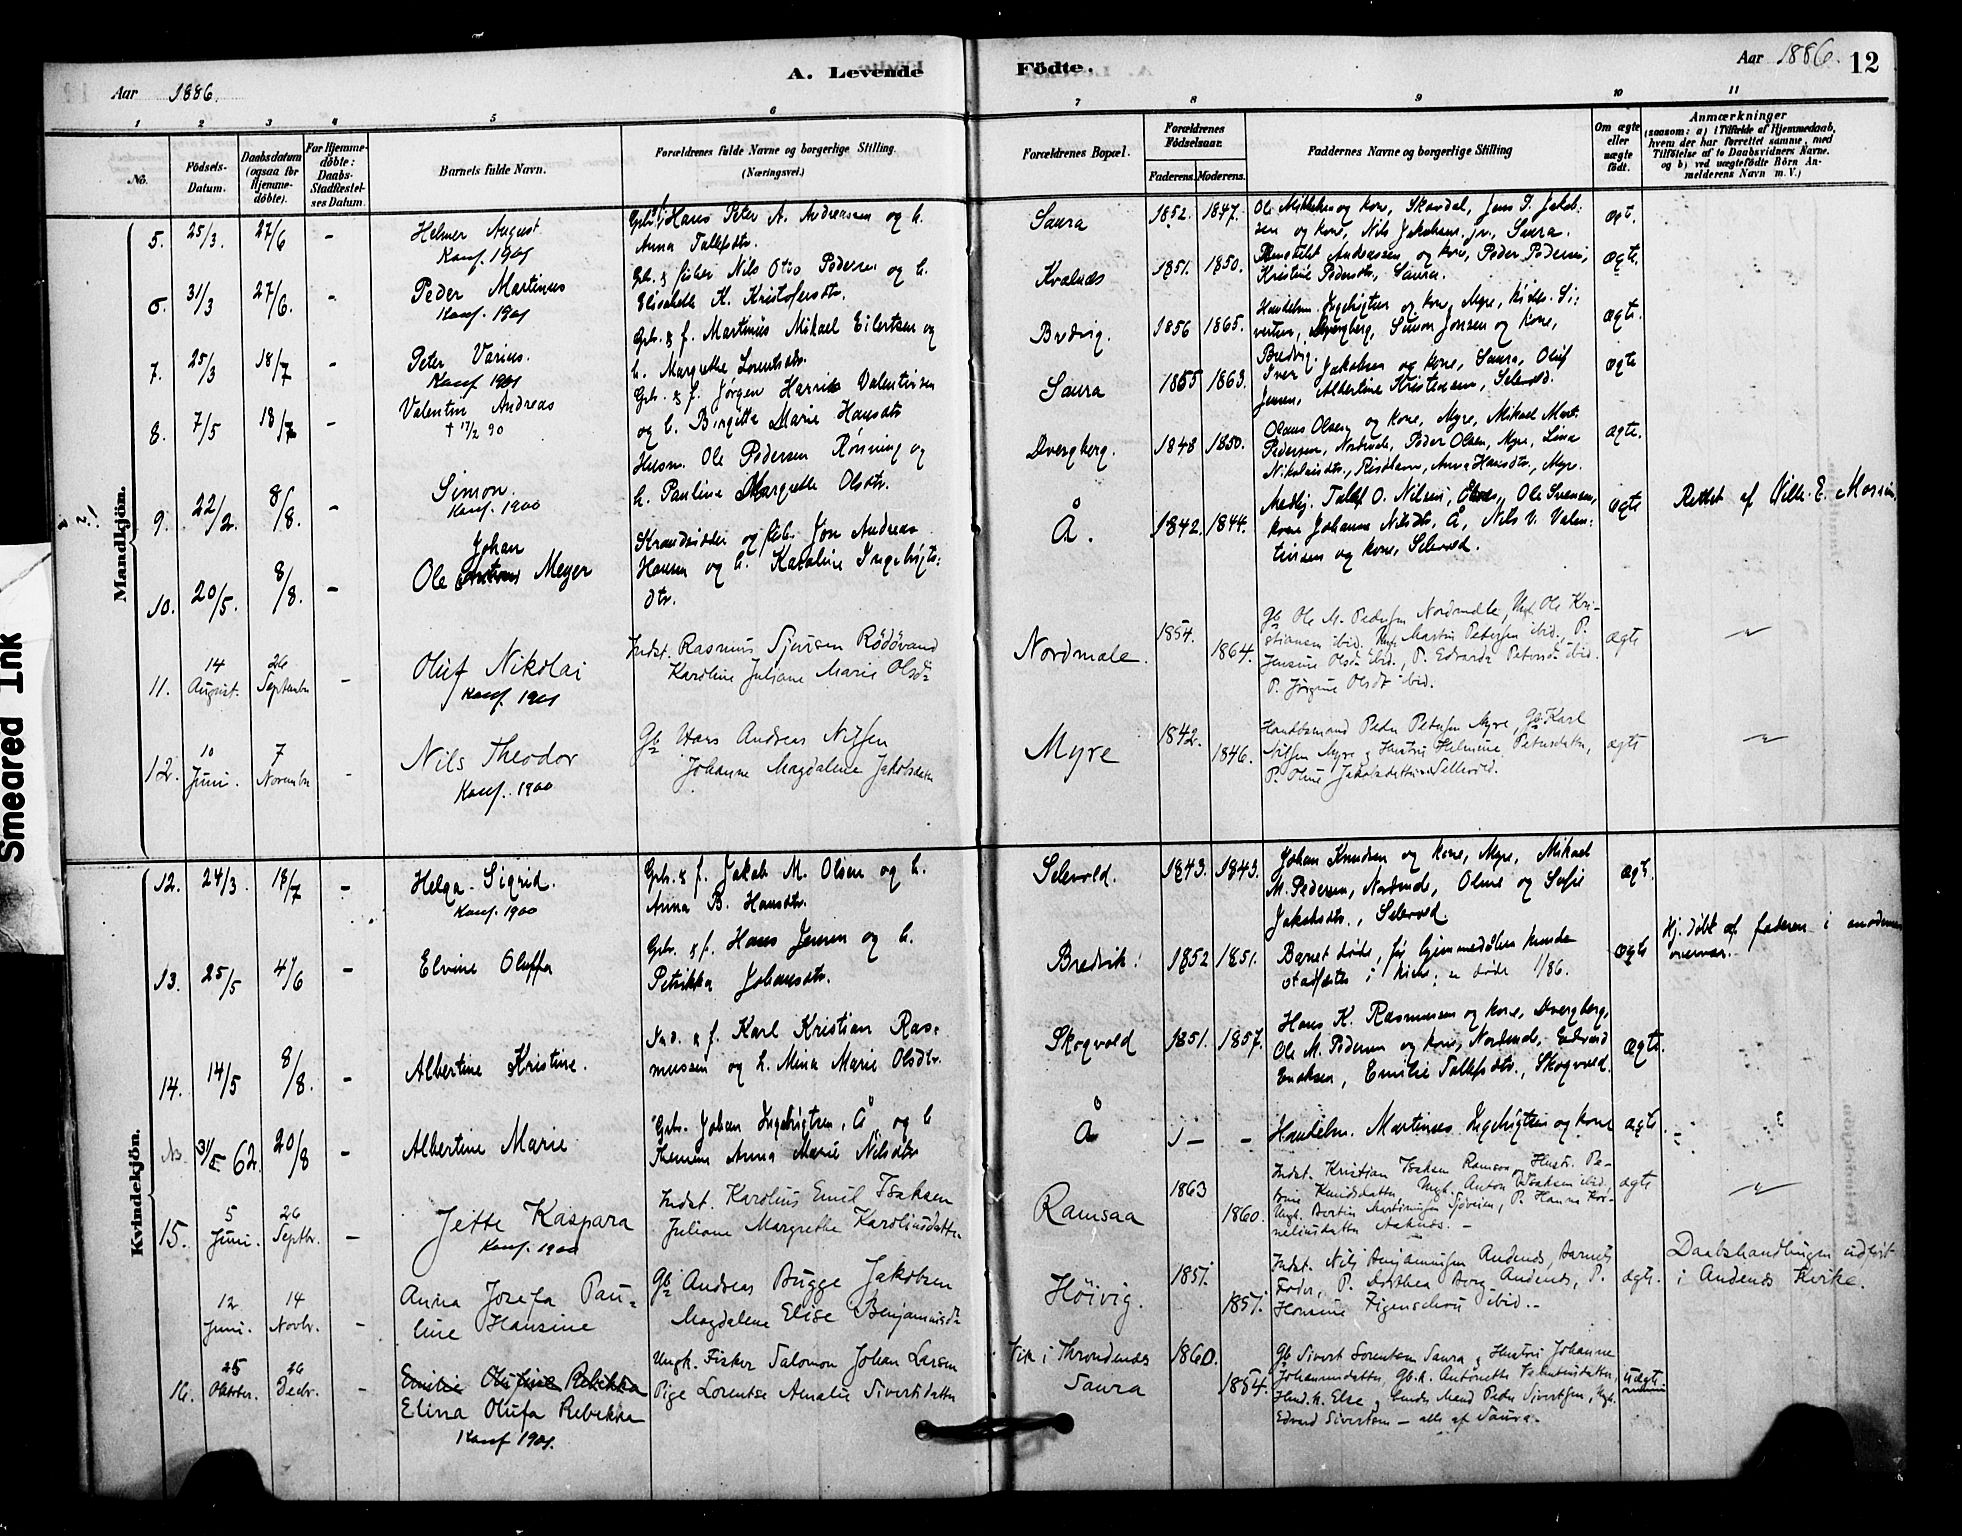 Aar 1886.
A. Levende
Födte.
Aar 1886.
12
1 2 3 4 5 6 7 8 9 10 11
No.
Födsels-
Datum.
Daabsdatum
(ogsaa for
Hjemme-
döbte).
For Hjemme-
döbte:
Daabs-
Stadfæstel-
ses Datum.
Barnets fulde Navn.
Forældrenes fulde Navne og borgerlige Stilling.
(Næringsvei.)
Forældrenes Bopæl.
Forældrenes
Födselsaar.
Faderens. Moderens.
Faddernes Navne og borgerlige Stilling
Om ægte
eller
uægte
født.
Anmærkninger
(saasom: a) i Tilfælde af Hjemmedaab,
hvem der har forrettet samme, med
Tilföielse af to Daabsvidners Navne,
og b) ved uægtefödte Börn An-
melderens Navn m. V.)
Mandkjön.
5. 25/3. 27/6 -
Helmer August
Konf. 1901
Hans Peter A. Andreassen og h.
Anna Tollefsdtr.
Saura
1852. 1847.
Ole Mikkelsen og kone, Skovdal, Jens P. Jakob-
sen og kone, Nils Jakobsen jr., Saura.
ægt.
6. 31/3 27/6. -
Peder Martinus
Konf. 1901
Gbr. & fisker Nils Otto Pedersen og h.
Elisabeth K. Kristofersdtr.
Kvalnæs
1851. 1850.
Andreassen og kone, Peder Pedersen,
Kristine Pedersdtr, Saura.
ægte.
7. 25/3 18/7 -
Peter Varius.
Konf 1901
Gbr. & f. Martinus Mikael Eilertsen og
h. Margrethe Lorentsdtr.
Bredvig.
1856 1865.
Handelsm. Ingebrigtsen og kone, Myre, Si-
vertsen, Dvergberg, Simon Jonsen og kone,
Bredvig.
ægte.
8. 7/5 18/7 -
Valentin Andreas
† 17/2 90
Gbr. & f. Jørgen Henrik Valentinsen
og h. Birgitta Marie Hansdtr
Saura
1855 1863.
Iver Jakobsen og kone, Saura, Oluf
Jensen, Albertine Kristensen, Selevold.
ægte
9. 22/2. 8/8. -
Simon.
Konf. 1900
Husm. Ole Pedersen Rønning og
h. Pauline Margrethe Olsdtr.
Dvergberg.
1848 1850.
Olaus Olsen og kone, Myre, Mikael Mart.
Pedersen, Nordmele, Peder Olsen, Myre, Lina
Nikolaisdtr., Risøhavn, Anna Hansdtr., Myre.
ægte.
10. 20/5. 8/8. -
Johan
Ole Meyer
Strandsidder og fisk. Jon Andreas
Hansen og h. Karoline Ingebrigts-
dtr.
Å.
1842. 1844.
Medhj. Tollef O. Nilsen, Ole Svensen,
kone Johanna Nilsdtr. Å, Nils V. Valen-
tinsen og kone, Selevold.
ægte
Rettet af Vilh. E.
11. 14 August. 26 September -
Oluf Nikolai
Konf. 1901
Indst. Rasmus Sjursen
Karoline Juliane Marie Olsdr
Nordmele.
1854. 1864.
Gb Ole M. Pedersen Nordmele, Ungk. Ole Kri-
stiansen ibid. Ungk. Martin Petersen ibid., P.
Jensine Olsdr ibid., P. Edvarda Petersdr ibid.
P. Jørgine Olsdr ibid.
ægte
"
12. 10 Juni. 7 November -
Nils Theodor
Konf. 1900
Gb Hans Andreas Nilsen
Johanne Magdalene Jakobsdatter
Myre
1842. 1846.
Handelsmand Peder Petersen Myre, Gb Karl
Nilsen Myre og Hustru Helmine Petersdatter,
P. Oline Jakobsdatter Sellevold.
ægte
"
Kvindekjön.
12. 24/3. 18/7 -
Helga Sigrid.
Konf. 1900
Gbr. & f. Jakob M. Olsen og h.
Anna B. Hansdtr.
Selevold.
1843. 1843.
Johan Knudsen og kone, Myre, Mikael
M. Pedersen, Nordmele, Oline og Sofie
Jakobsdtr., Selevold.
ægt.
13. 25/5 4/6 -
Elvine Oluffa
Gbr. & f. Hans Jensen og h.
Petrikka Johansdtr.
Bredvik.
1852 1851.
Barnet døde, før hjemmedåben kunde
stadfæstes i kirke;
ægte
Hj. døbt af faderen i moderens
overvær.
14. 14/5 8/8. -
Albertine Kristine.
Ind. & f. Karl Kristian Ras-
mussen og h. Mina Marie Olsdtr.
Skogvold
1851. 1857.
Hans K. Rasmussen og kone, Dvergberg,
Ole M. Pedersen og kone, Nordmele, Edvard
Emilie Tollefsdtr., Skogvold.
ægte.
31/5 62. 20/8 -
Albertine Marie
Gbr. Johan Ingebrigtsen, Å og h
Anna Marie Nilsdtr
Å
Handelsm. Martinus Ingebrigtsen og kone
ægte.
15. 5 Juni. 26 Septbr. -
Jette Kaspara
Konf. 1900
Indst. Karolius Emil Isaksen
Juliane Margrethe Karolinsdatter
Ramsaa
1863 1860.
Indst. Kristian Isaksen Ramsaa og Hustr. Pe-
trine Knudsdatter Ungk. Anton Isaksen ibid.
Ungk. Bertin Martinusen P. Hanna Kor-
neliusdatter
ægte
"
12 Juni. 14 Novbr. -
Anna Josefa Pau-
line Hansine
Gb Andreas Bugge Jakobsen
Magdalene Elise Benjaminsdr
Höivig.
1851. 1851.
Indst. Nils Benjaminsen Andenes, Barnets
Fader, P. Dorthea Borg Andenes, P.
Hansine Figenschou ibid.
ægte.
Daabshandlingen udført
i Andenes Kirke.
16. 25 Oktober. 26 Decbr. -
Emilie Olufine Rebekka
Elina Olufa Rebekka
Konf 1901.
Ungk. Fisker Salomon Johan Larsen
Pige Lorentse Amalie Sivertsdatter
Vik i Throndenes
Saura
1860. 1854.
Gb Sivert Lorentsen Saura og Hustru Johanne
Johannesdatter, Gb.k. Antonette Valentinsdatter,
Edvard Sivertsen — alle af Saura.
Uægte
Smeared Ink